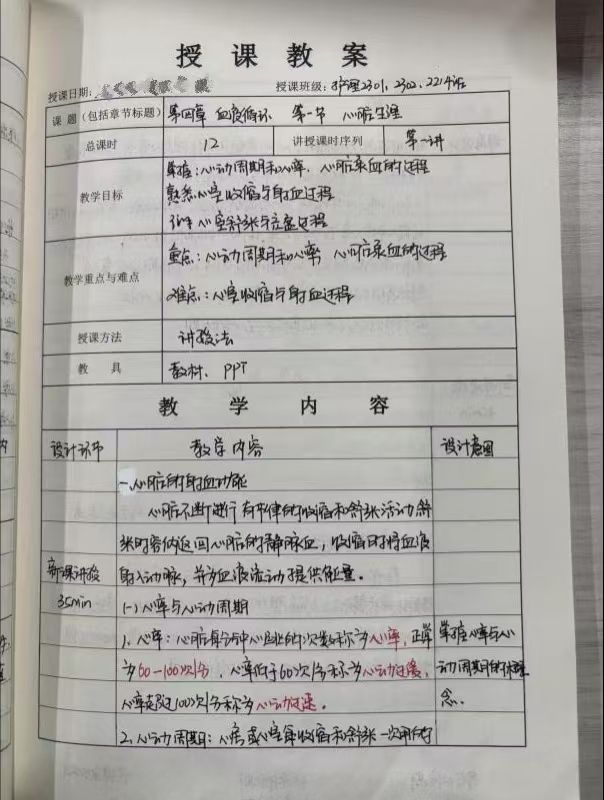 授课教案
授课日期: 授课班级: 护理2301、2302、2214班
课题(包括章节标题) 第四章 血液循环 第一节 心脏生理
总课时 12 讲授课时序列 第一讲
教学目标
掌握:心动周期和心率、心脏泵血的过程
熟悉:心室收缩与射血过程
了解:心室舒张与充盈过程
教学重点与难点
重点:心动周期和心率、心脏泵血的过程
难点:心室收缩与射血过程
授课方法 讲授法
教具 教材、PPT
教学内容
设计环节 教学内容 设计意图
一、心脏的射血功能
心脏不断进行有节律的收缩和舒张活动,舒
张时容纳返回心脏的静脉血,收缩时将血液
新课讲授 射入动脉,并为血液流动提供能量。
35min (一) 心率与心动周期
1. 心率:心脏每分钟心跳的次数称为心率,正常 掌握心率与心
为60-100次/分,心率低于60次/分称为心动过缓, 动周期的概
心率超过100次/分称为心动过速。 念。
2. 心动周期:心房或心室每收缩和舒张一次所